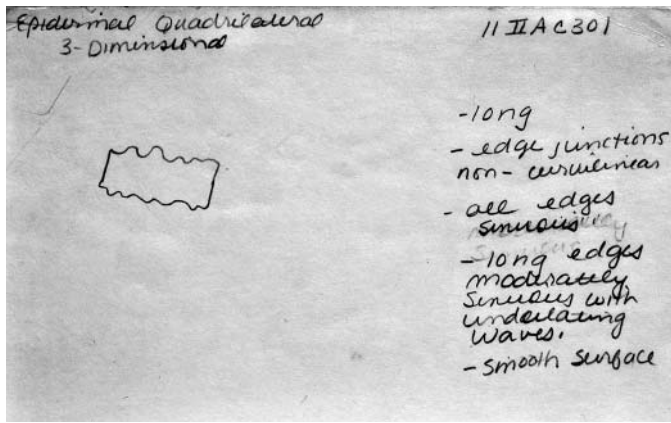 Epidermal Quadrilateral
3-Dimensional
11 II A C 301
-long
- edge junctions
non-curvilinear
- all edges
sinuous
- long edges
moderately
sinuous with
undulating
waves.
- smooth surface